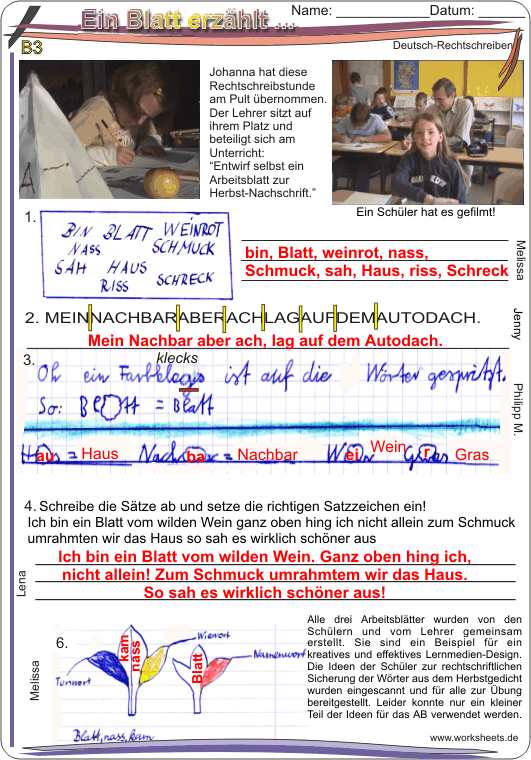 Ein Blatt erzählt ...
Name: Datum:
B3
Deutsch-Rechtschreiben
Johanna hat diese
Rechtschreibstunde
am Pult übernommen.
Der Lehrer sitzt auf
ihrem Platz und
beteiligt sich am
Unterricht:
“Entwirf selbst ein
Arbeitsblatt zur
Herbst-Nachschrift.”
Ein Schüler hat es gefilmt!
1.
BIN BLATT WEINROT
NASS SCHMUCK
SAH HAUS
RISS SCHRECK
bin, Blatt, weinrot, nass,
Schmuck, sah, Haus, riss, Schreck
Melissa
2. MEINNACHBARABERACHLAGAUFDEMAUTODACH.
Mein Nachbar aber ach, lag auf dem Autodach.
Jenny
3.
klecks
Oh ein Farbklegs ist auf die Wörter gespritzt.
So: Bl tt = Blatt
Haus = Haus Nachbar = Nachbar Wein Wein Gras Gras
Philipp M.
4. Schreibe die Sätze ab und setze die richtigen Satzzeichen ein!
Ich bin ein Blatt vom wilden Wein ganz oben hing ich nicht allein zum Schmuck
umrahmten wir das Haus so sah es wirklich schöner aus
Ich bin ein Blatt vom wilden Wein. Ganz oben hing ich,
nicht allein! Zum Schmuck umrahmtem wir das Haus.
So sah es wirklich schöner aus!
Lena
6.
kam
nass
Blatt
Wiewort
Namenwort
Tunwort
Blatt, nass, kam
Melissa
Alle drei Arbeitsblätter wurden von den
Schülern und vom Lehrer gemeinsam
erstellt. Sie sind ein Beispiel für ein
kreatives und effektives Lernmedien-Design.
Die Ideen der Schüler zur rechtschriftlichen
Sicherung der Wörter aus dem Herbstgedicht
wurden eingescannt und für alle zur Übung
bereitgestellt. Leider konnte nur ein kleiner
Teil der Ideen für das AB verwendet werden.
www.worksheets.de